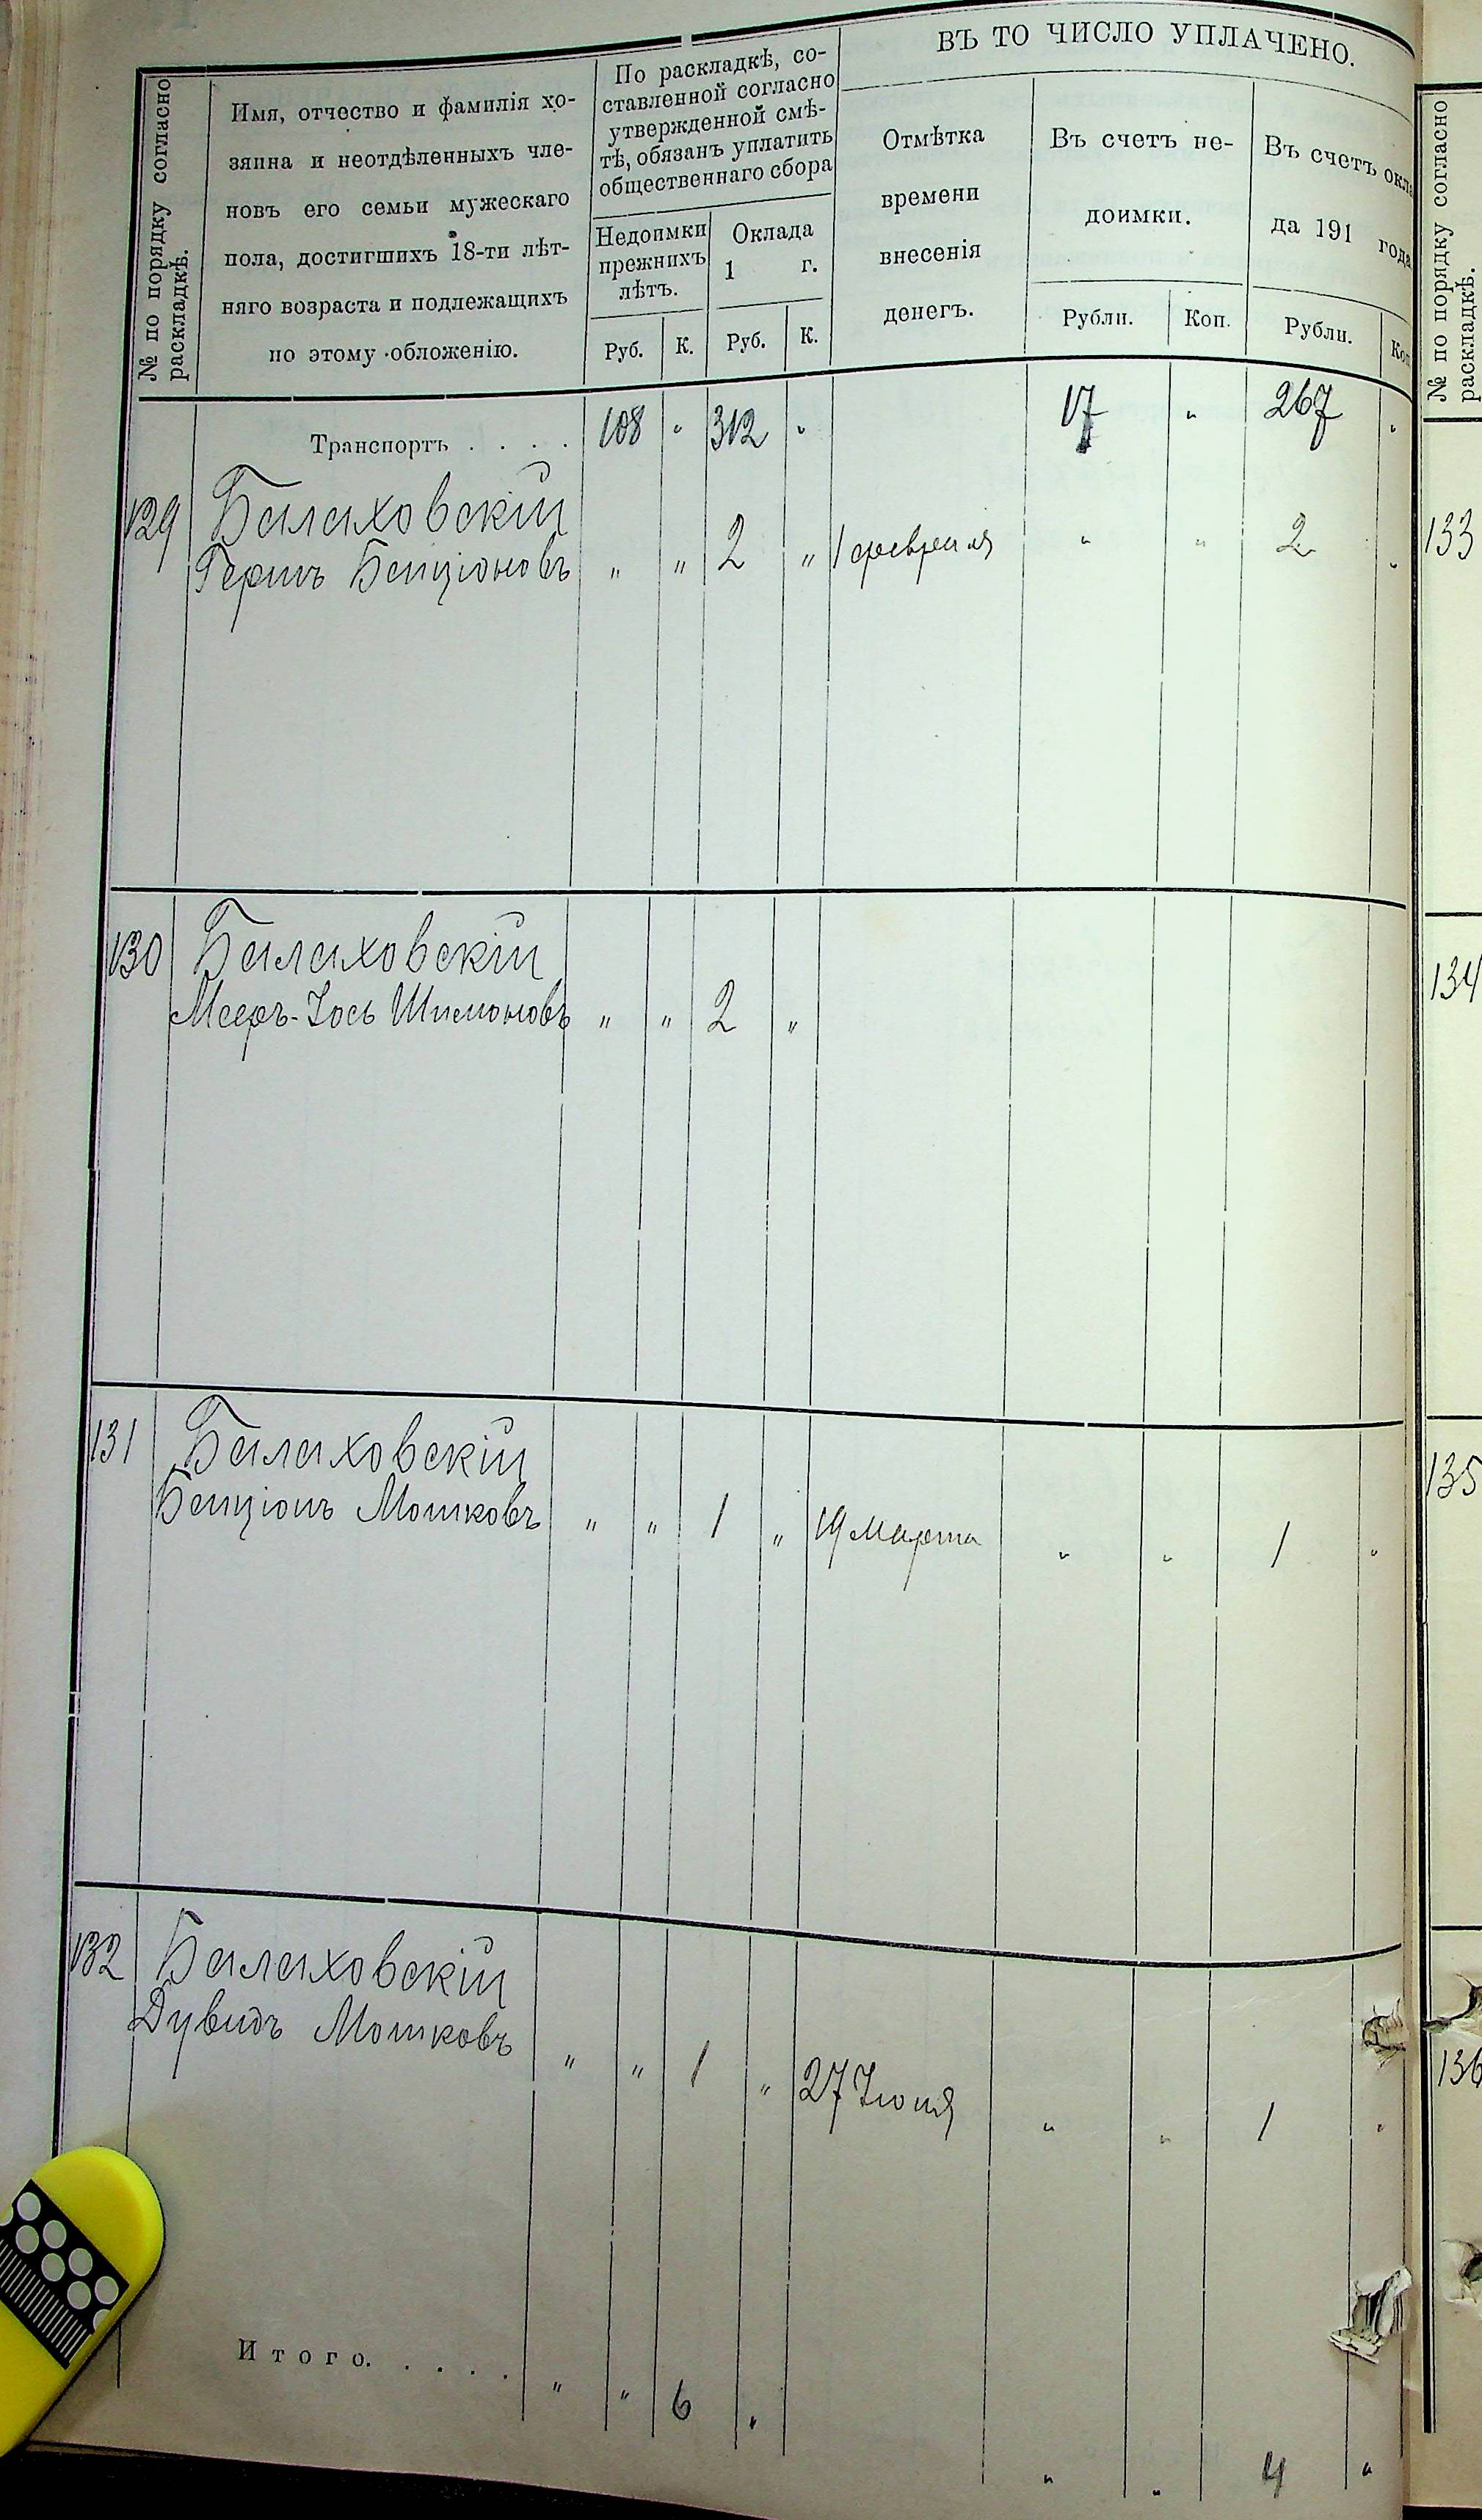 № по порядку согласно
раскладкѣ.
Имя, отчество и фамилія хо-
зяина и неотдѣленныхъ чле-
новъ его семьи мужескаго
пола, достигшихъ 18-ти лѣт-
няго возраста и подлежащихъ
по этому обложенію.
По раскладкѣ, со-
ставленной согласно
утвержденной смѣ-
тѣ, обязанъ уплатить
общественнаго сбора
Недоимки
прежнихъ
лѣтъ.
Оклада
1 г.
Руб. К. Руб. К.
ВЪ ТО ЧИСЛО УПЛАЧЕНО.
Отмѣтка
времени
внесенія
денегъ.
Въ счетъ не-
доимки.
Рубли. Коп.
Въ счетъ окла
да 191 года
Рубли. Коп
Транспортъ . . . . 108 „ 312 „ 17 „ 267 „
129 Балаховскій
Гершъ Бенціоновъ „ „ 2 „ 1 февраля „ „ 2 „
130 Балаховскій
Мееръ-Іось Шимоновъ „ „ 2 „
131 Балаховскій
Бенціонъ Мошковъ „ „ 1 „ 19 Марта „ „ 1 „
132 Балаховскій
Дувидъ Мошковъ „ „ 1 „ 27 Іюня „ „ 1 „
Итого. . . . . „ „ 6 „ „ „ 4 „
№ по порядку согласно
раскладкѣ.
133
134
135
136